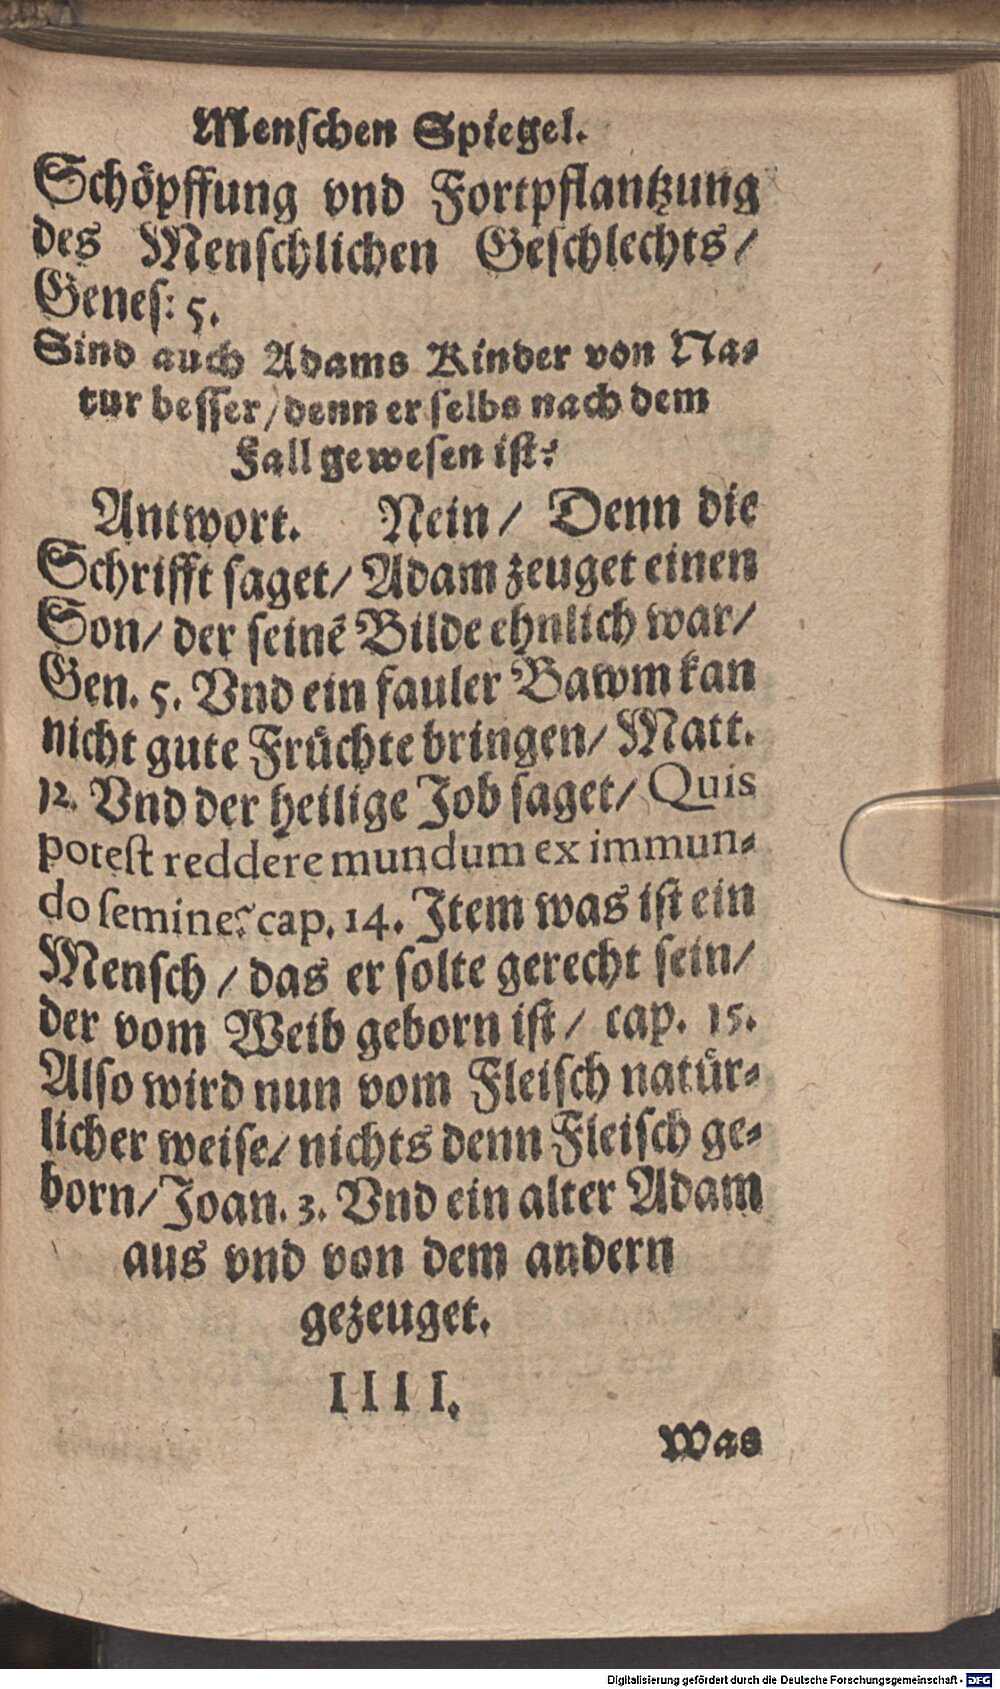 Menſchen Spiegel.
Schöpffung vnd Fortpflantzung
des Menſchlichen Geſchlechts/
Geneſ: 5.
Sind auch Adams Kinder von Na⸗
tur beſſer/ denn er ſelbs nach dem
Fall geweſen iſt?
Antwort. Nein/ Denn die
Schrifft ſaget/ Adam zeuget einen
Son/ der ſeinē Bilde ehnlich war/
Gen. 5. Vnd ein fauler Bawm kan
nicht gute Früchte bringen/ Matt.
12. Vnd der heilige Job ſaget/ Quis
poteſt reddere mundum ex immun⸗
do ſemine? cap. 14. Item was iſt ein
Menſch / das er ſolte gerecht ſein/
der vom Weib geborn iſt / cap. 15.
Alſo wird nun vom Fleiſch natür⸗
licher weiſe/ nichts denn Fleiſch ge⸗
born/ Joan. 3. Vnd ein alter Adam
aus vnd von dem andern
gezeuget.
IIII.
Was
Digitalisierung gefördert durch die Deutsche Forschungsgemeinschaft - DFG